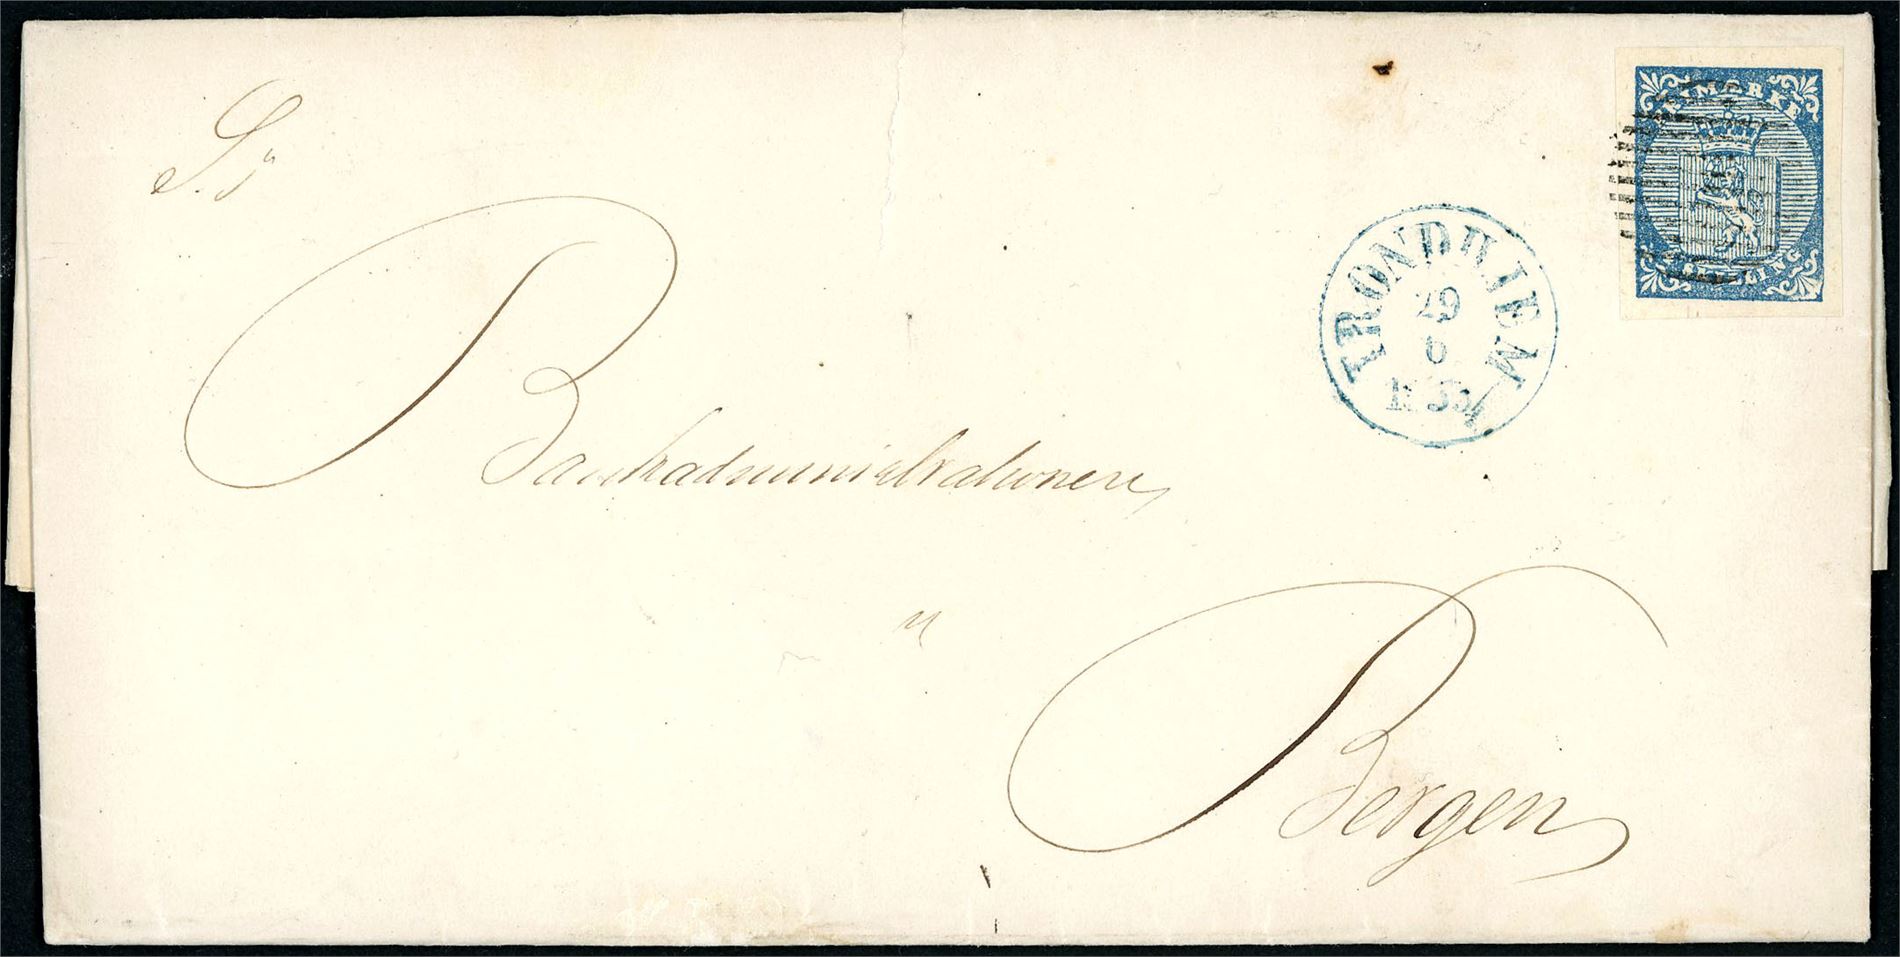 S. J.
Bankadministrationen
Bergen
TRONDHJEM
29
6
FRIMÆRKE
SKILLING